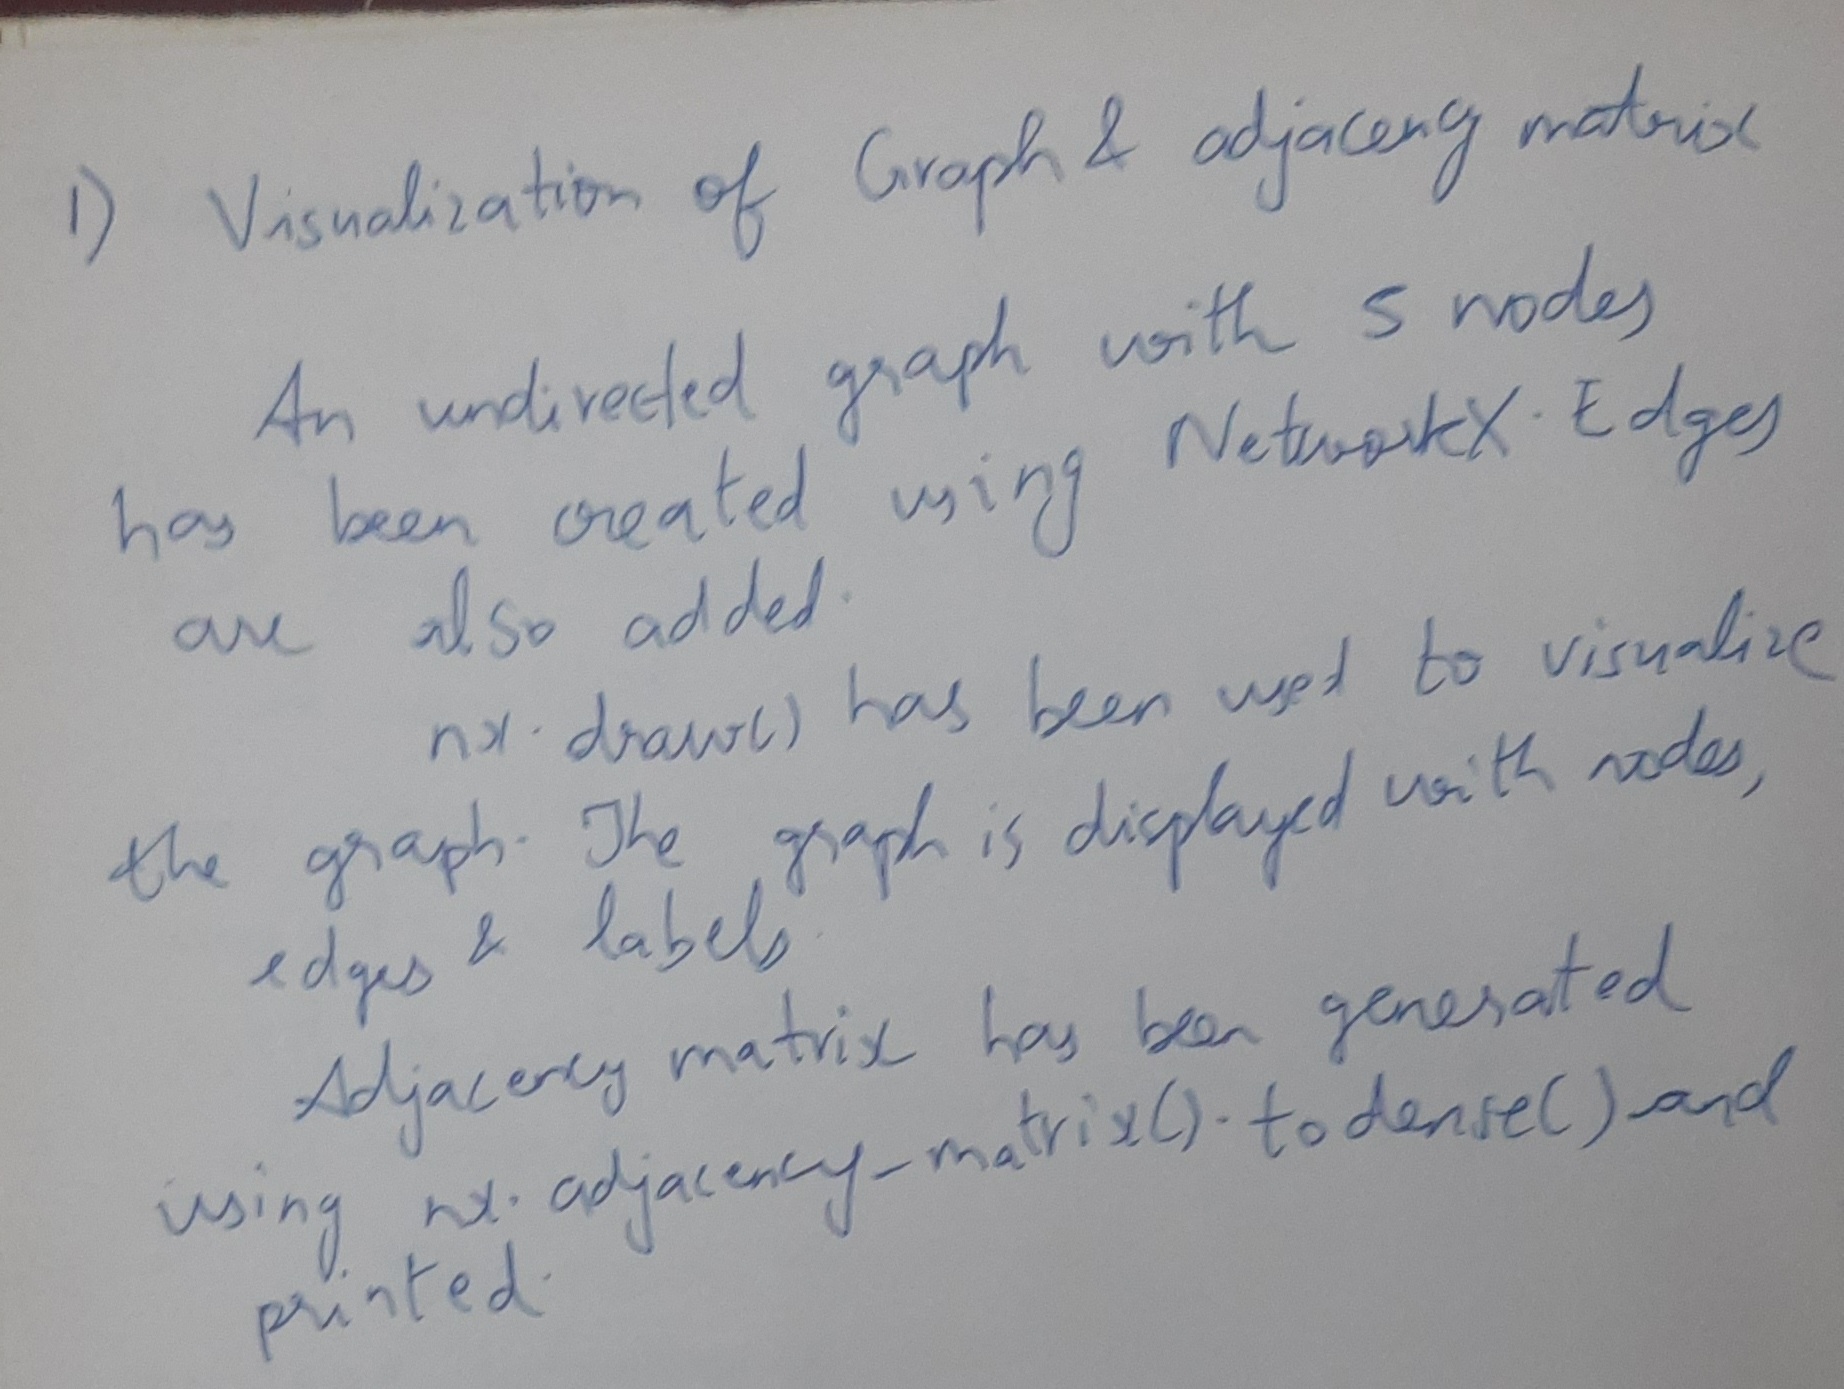 1) Visualization of Graph & adjacency matrix
An undirected graph with 5 nodes
has been created using NetworkX. Edges
are also added.
nx.draw() has been used to visualize
the graph. The graph is displayed with nodes,
edges & labels.
Adjacency matrix has been generated
using nx.adjacency_matrix().todense() and
printed.